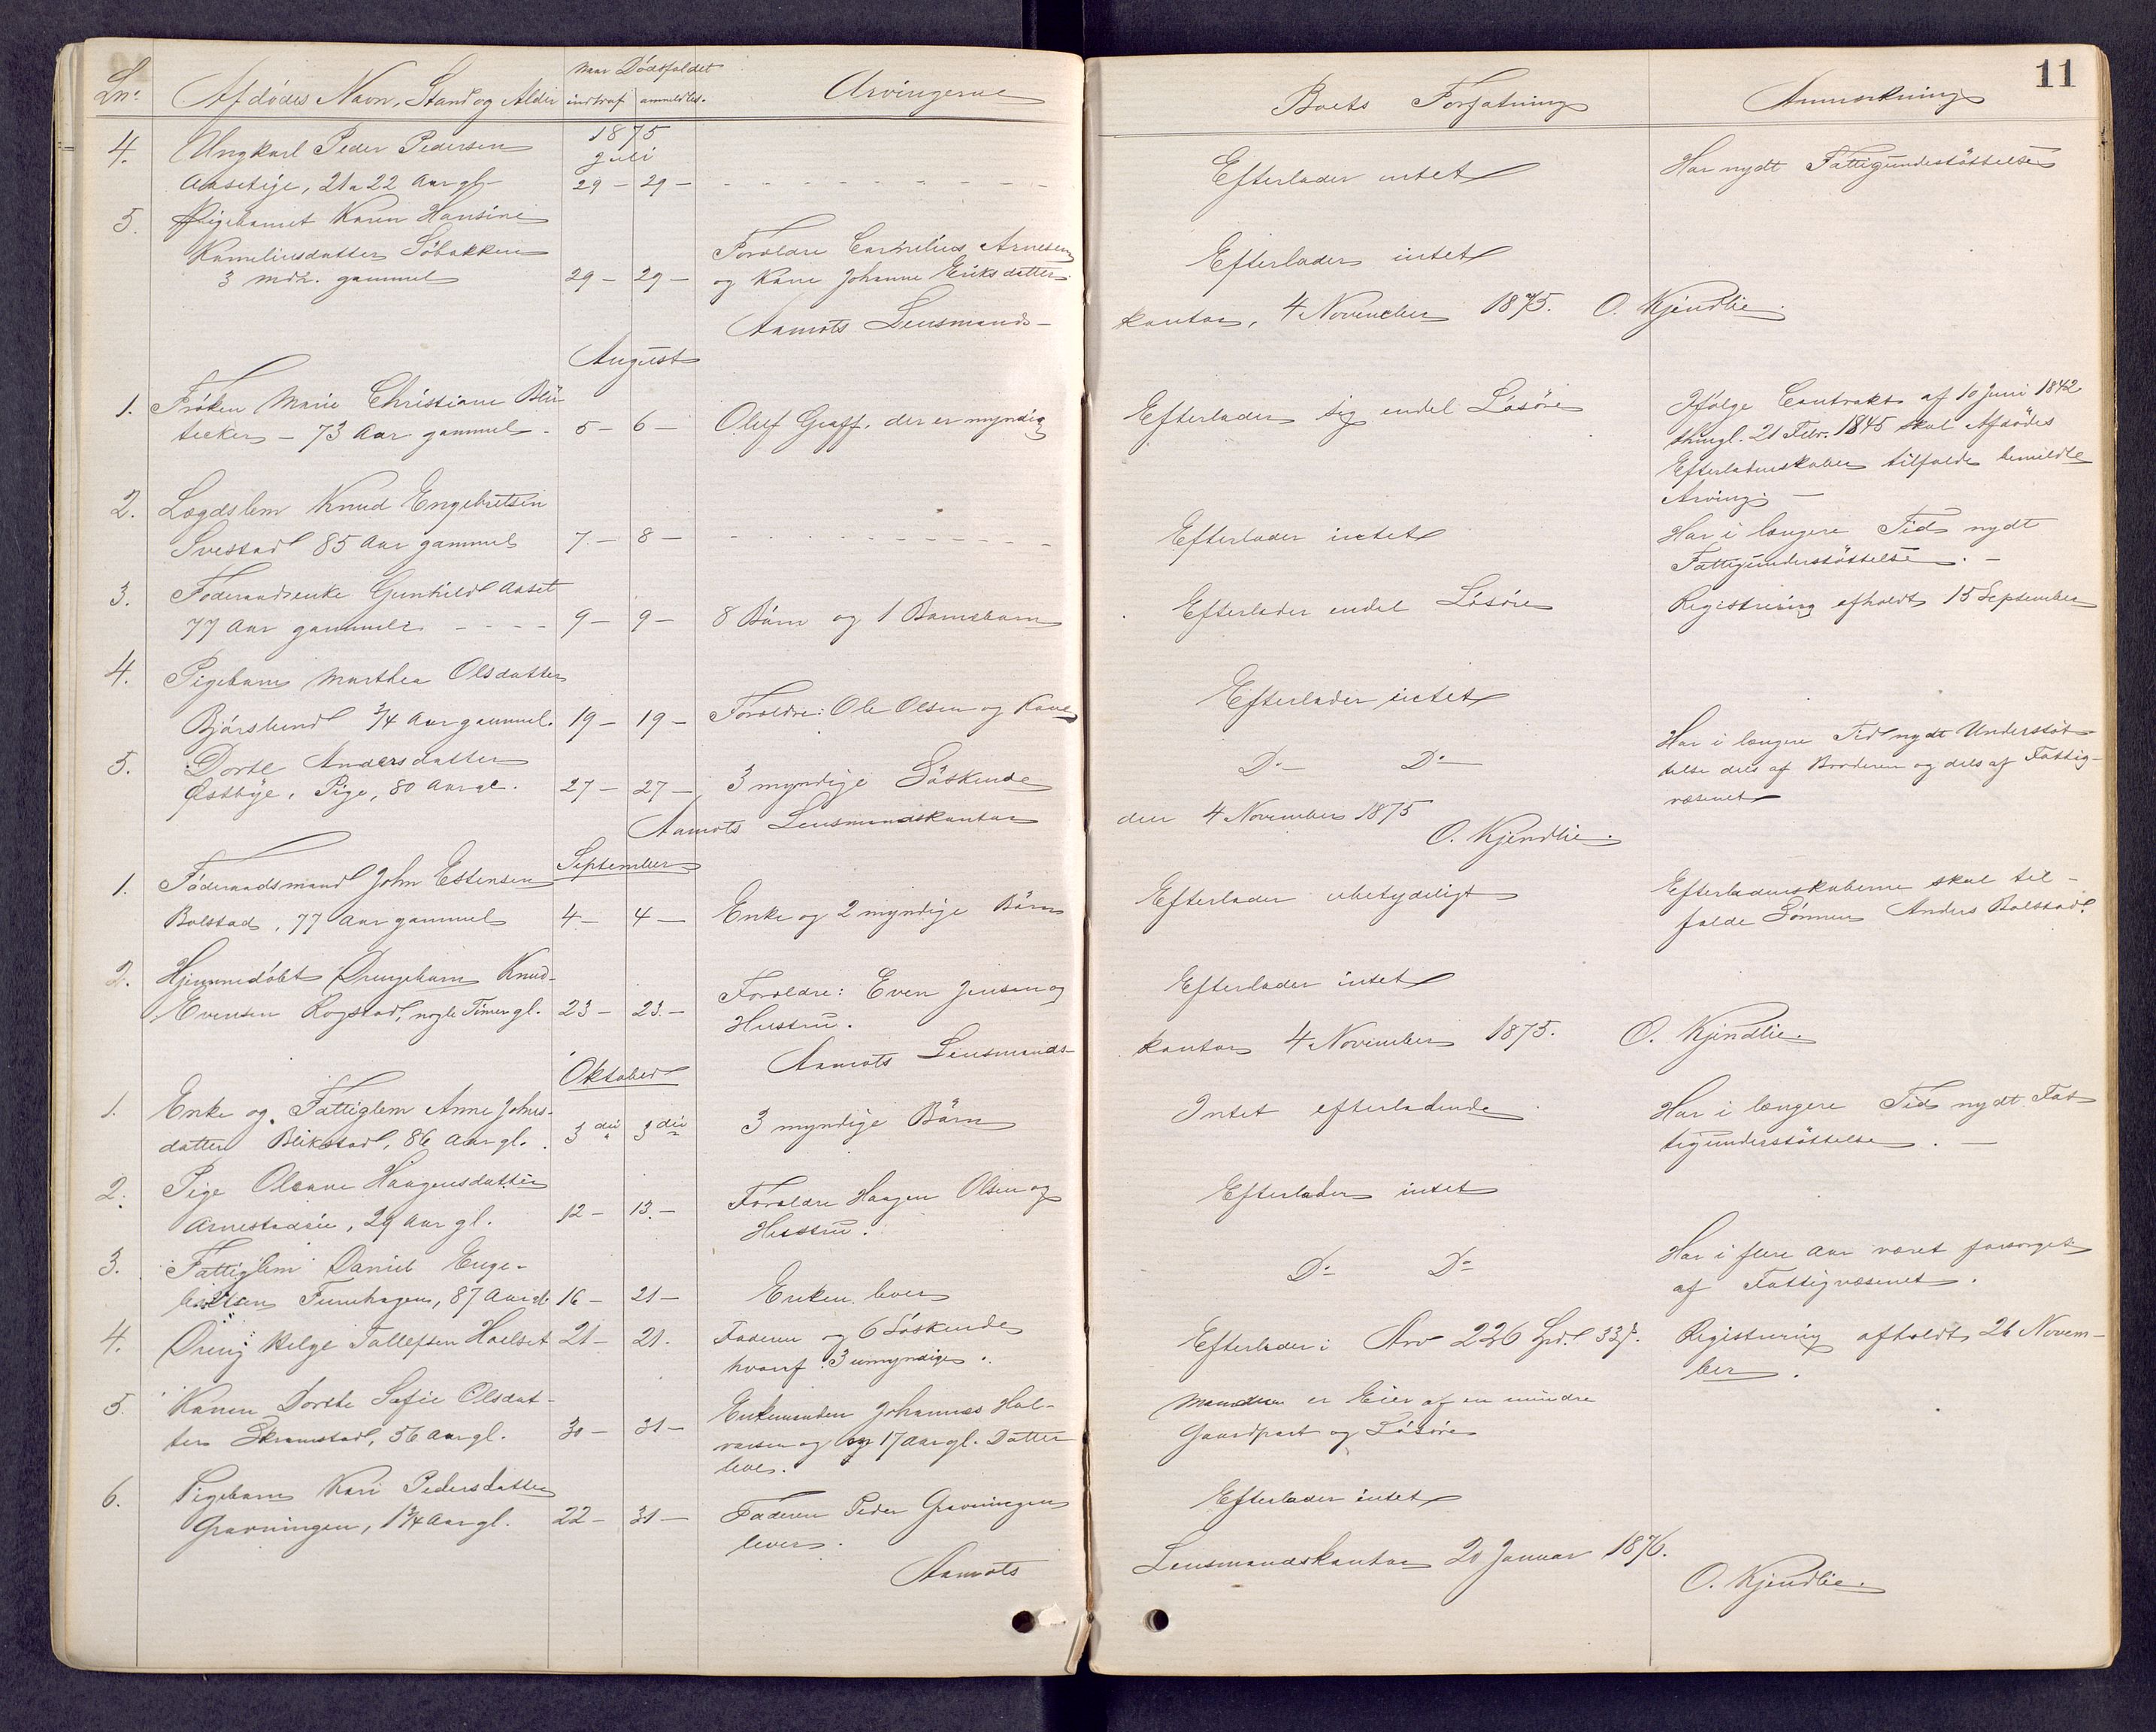 11
Lno. Afdødes Navn, Stand og Alder Naar Dødsfaldet indtraf anmeldtes. Arvingerne Boets Forfatning Anmærkning
1875
Juli
4. Ungkarl Peder Pedersen
Aaseteje, 21 a 22 Aar gl. 29 - 29 - Efterlader intet Har nydt Fattigunderstöttelse
5. Pigebarnet Karen Hansine
Korneliusdatter Söbakken
3 mdr. gammel 29 - 29 - Forældre Cornelius Arnesen
og Kone Johanne Eriksdatter. Efterlader intet
Aamots Lensmands-
kontor, 4 November 1875. O. Kjendlie.
August
1. Fröken Marie Christiane Blü
tecker - 73 Aar gammel - 5 - 6 - Oluf Graff, der er myndig Efterlader sig endel Lösöre Ifölge Contrakt af 10 Juni 1842
thingl. 21 Febr. 1845 skal Afdödes
Efterladenskaber tilfalde bemeldte
Arving. -
2. Lægdslem Knud Engebretsen
Svestad 85 Aar gammel 7 - 8 - Efterlader intet Har i længere Tid nydt
Fattigunderstöttelse. -
3. Föderaadsenke Gunhild Aaset
77 Aar gammel 9 - 9 - 8 Börn og 1 Barnebarn Efterlader endel Lösöre Registrering afholdt 15 September
4. Pigebarn Marthea Olsdatter
Bjørslund 3/4 Aar gammel. 19 - 19 - Forældre: Ole Olsen og Kone Efterlader intet
5. Dorte Andersdatter
Østbye, Pige, 80 Aar gl. 27 - 27 - 3 myndige Söskende Do Do Har i længere Tid nydt Understöt
telse dels af Broderen og dels af Fattig-
væsenet
Aamots Lensmandskontor
den 4 November 1875
O. Kjendlie.
September
1. Föderaadsmand John Estensen
Bolstad, 77 Aar gammel 4 - 4 - Enke og 2 myndige Börn Efterlader ubetydeligt Efterladenskaberne skal til-
falde Sönnen Anders Bolstad.
2. Hjemmedöbt Drengebarn Knud
Evensen Rogstad, nogle Timer gl. 23 - 23. - Forældre: Even Jensen og
Hustru. Efterlader intet
Aamots Lensmands-
kontor 4 November 1875. O. Kjendlie.
Oktober
1. Enke og Fattiglem Anne Johns-
datter Blikstad, 86 Aar gl. 3die 3die 3 myndige Börn Intet efterladende Har i længere Tid nydt Fat
tigunderstöttelse. -
2. Pige Oleane Haagensdatter
Arnestadeie, 29 Aar gl. 12 - 13. - Forældre Haagen Olsen og
Hustru. Efterlader intet
3. Fattiglem Daniel Enge-
bretsen Furuhagen, 87 Aar gl. 16 - 21 - Enken lever Do Do Har i flere Aar været forsörget
af Fattigvæsenet.
4. Dreng Helge Tollefsen Hoelset 21 - 21. Faderen og 6 Söskende
hvoraf 3 umyndige. Efterlader i Arv 226 Spd. 33 s. Registrering afholdt 26 Novem-
ber.
5. Konen Dorthe Sofie Olsdat-
ter Skramstad, 56 Aar gl. 30 - 31 - Enkemanden Johannes Hal-
vorsen og en 17 Aar gl. Datter
lever. Manden er Eier af en mindre
Gaardpart og Lösöre
6. Pigebarn Kari Pedersdatter
Gravningen, 1 3/4 Aar gl. 22 - 31 - Faderen Peder Gravningen
lever. Efterlader intet
Aamots
Lensmandskontor 20 Januar 1876.
O. Kjendlie.